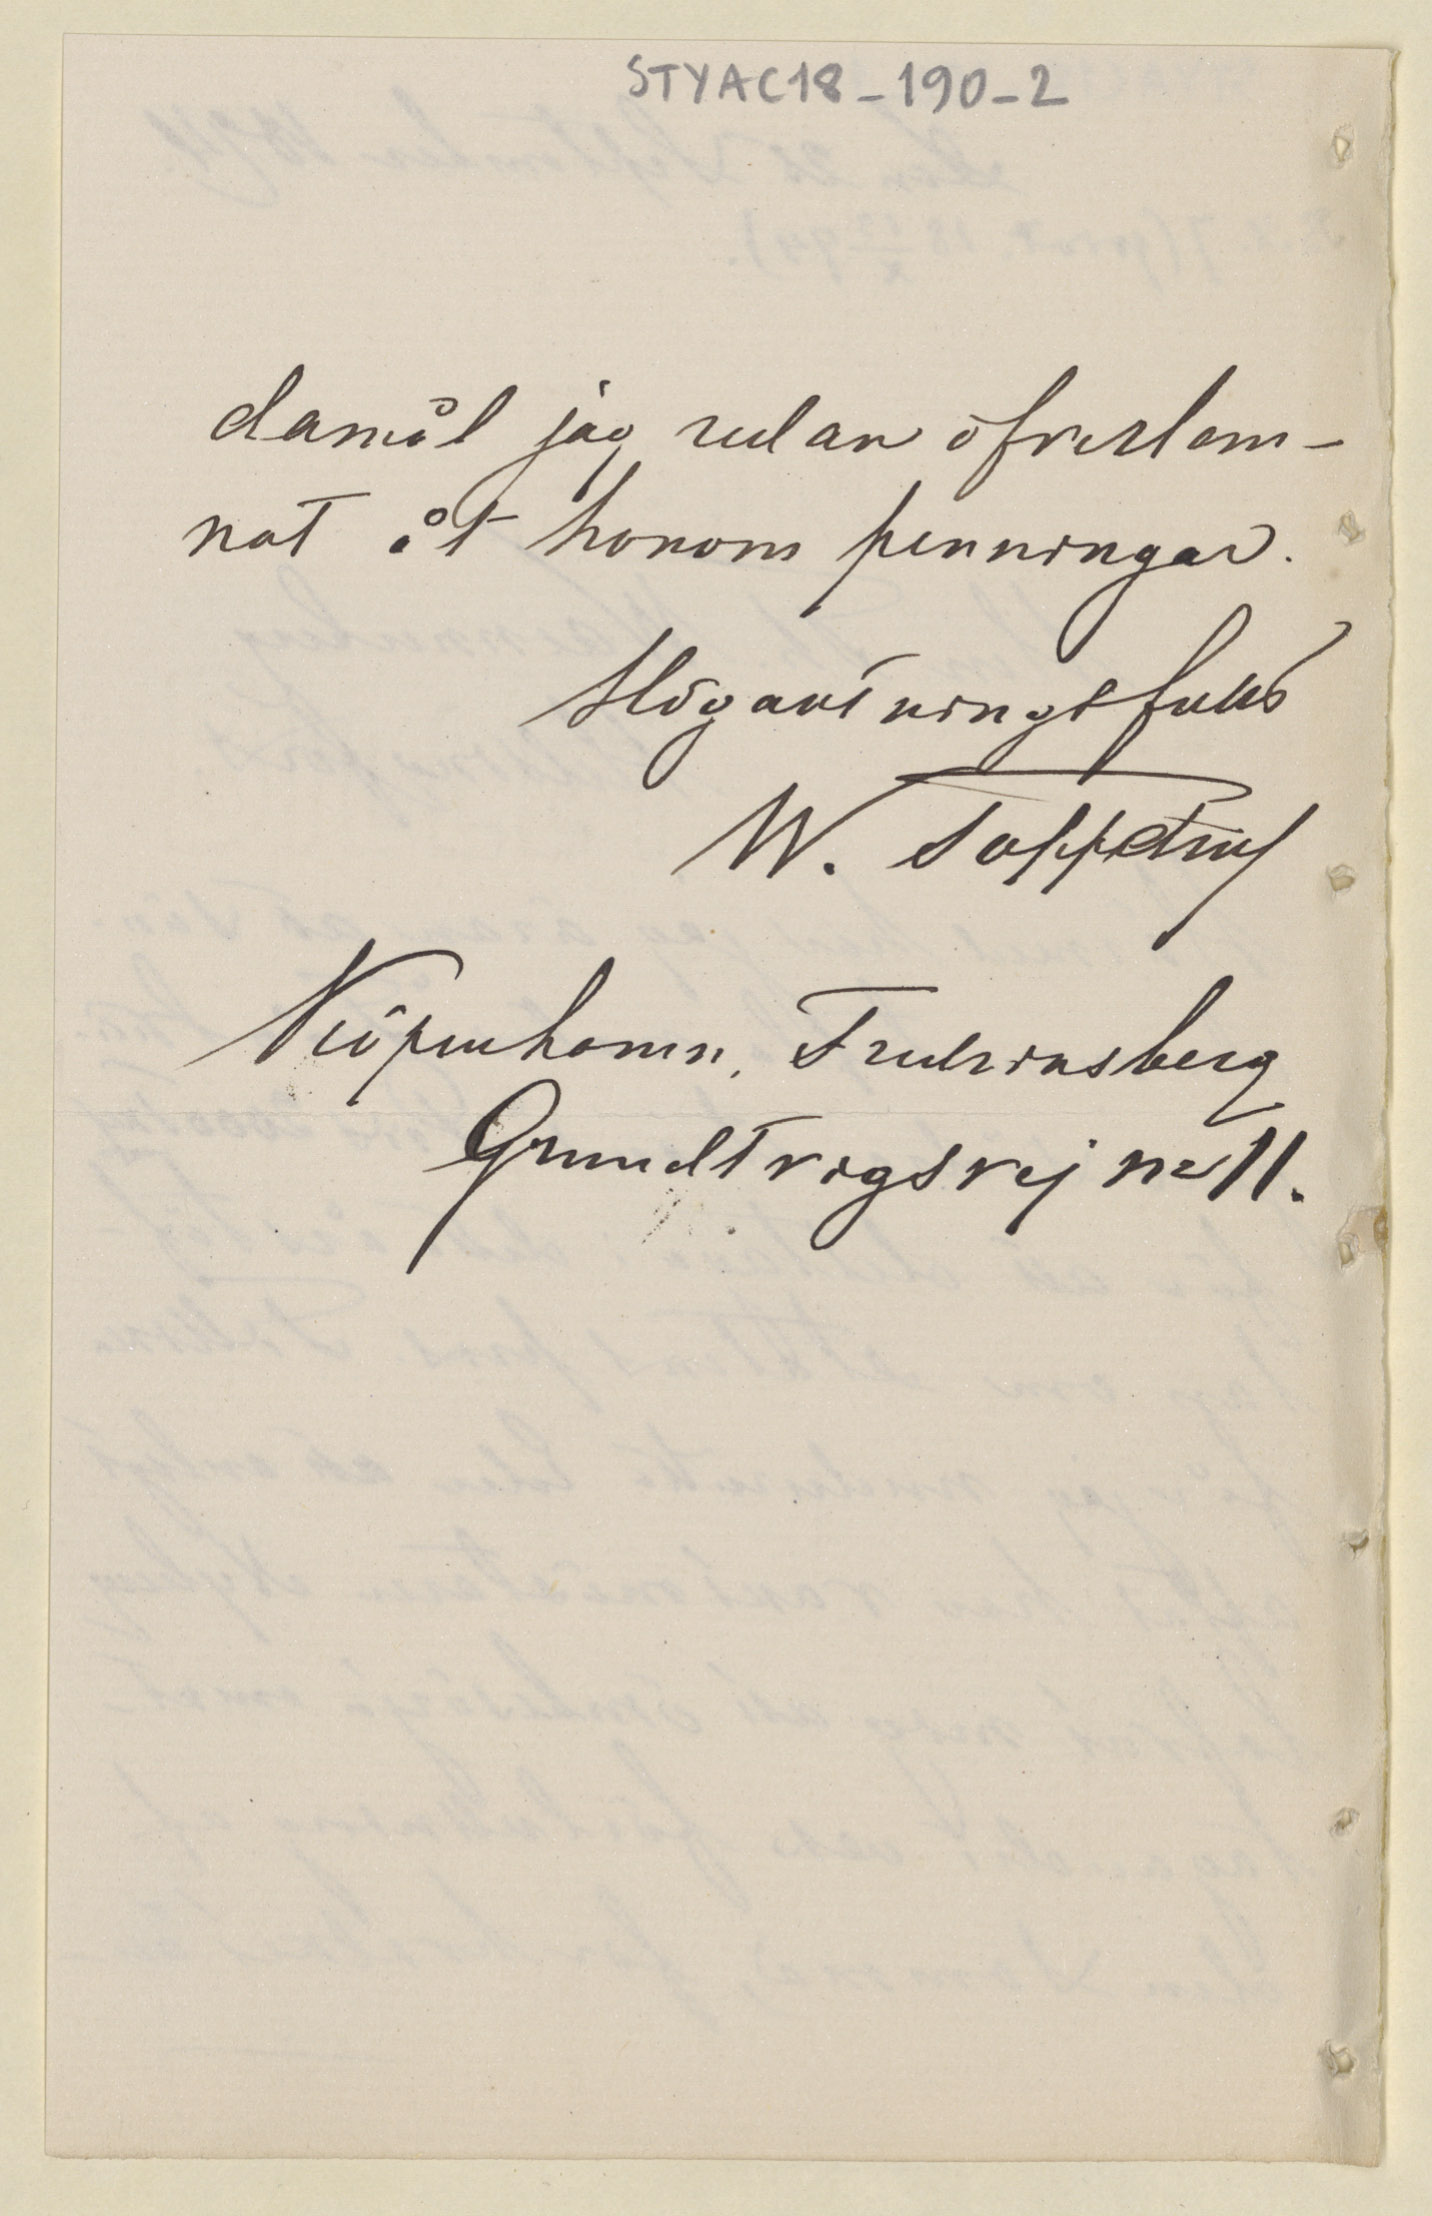 STYAC18-190-2
damål jag redan öfverlem-
nat åt honom penningar.
Högaktningsfullt
W. Toppelius
Kiöpenhamn, Fredriksberg
Grundtvigsvej No 11.